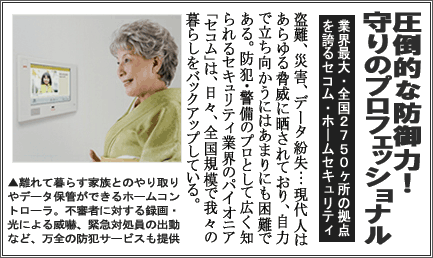 圧倒的な防御力！
守りのプロフェッショナル
業界最大・全国2750ヶ所の拠点
を誇るセコム・ホームセキュリティ
盗難、災害、データ紛失…現代人は
あらゆる脅威に晒されており、自力
で立ち向かうにはあまりにも困難で
ある。防犯・警備のプロとして広く知
られるセキュリティ業界のパイオニア
「セコム」は、日々、全国規模で我々の
暮らしをバックアップしている。
▲離れて暮らす家族とのやり取り
やデータ保管ができるホームコン
トローラ。不審者に対する録画・
光による威嚇、緊急対処員の出動
など、万全の防犯サービスも提供